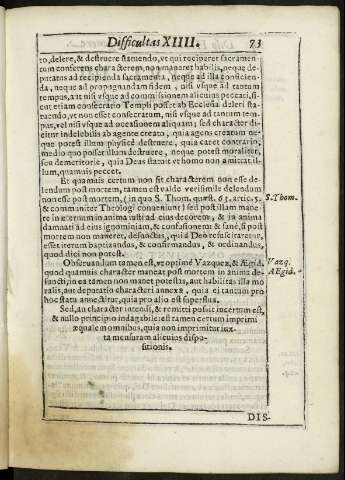 Difficultas XIIII. 73
to, delere, & destruere statuendo, vt qui reciperet sacramen-
tum conferens characterem, non maneret habilis, neque de-
putatus ad recipienda sacramenta, neque ad illa conficien-
da, neque ad propagandam fidem, nisi vsque ad tantum
tempus, aut nisi vsque ad commissionem alicuius peccati, si-
cut etiam consecratio Templi posset ab Ecclesia deleri sta-
tuendo, vt non esset consecratum, nisi vsque ad tantum tem-
pus, vel nisi vsque ad occasionem aliquam; sed character di-
citur indelebilis ab agente creato, quia agens creatum ne-
que potest illum physicè destruere, quia caret contrario,
medio quo posset illum destruere, neque potest moraliter,
seu demeritorie, quia Deus statuit vt homo non amittat il-
lum, quamuis peccet.
Et quamuis certum non sit characterem non esse de-
lendum post mortem, tamen est valde verisimile delendum
non esse post mortem, (in quo S. Thom. quæst. 63. artic. 5.
& communiter Theologi conueniunt) sed post illam mane-
re in æternum in anima iusti ad eius decorem, & in anima
damnati ad eius ignominiam, & confusionem & sanè, si post
mortem non maneret, defunctus, qui à Deo resuscitaretur,
esset iterum baptizandus, & confirmandus, & ordinandus,
quod dici non potest.
S. Thom.
Obseruandum tamen est, vt optimè Vazquez, & Ægid.
quod quamuis character maneat post mortem in anima de-
functi, in ea tamen non manet potestas, aut habilitas illa mo-
ralis, aut deputatio characteri annexa, quia ei tantum pro
hoc statu annectitur, quia pro alio est superflua.
Vazq.
AEgid.
Sed, an character intendi, & remitti possit incertum est,
& nullo principio indagabile est tamen certum imprimi
æqualem omnibus, quia non imprimitur iux-
ta mensuram alicuius dispo-
sitionis.
DIS-